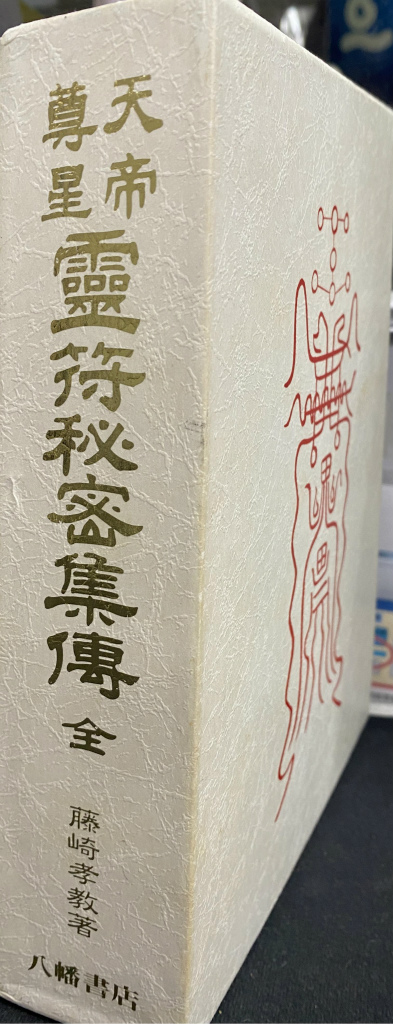 天帝
尊星
靈符秘密集傳
全
藤崎孝教著
八幡書店